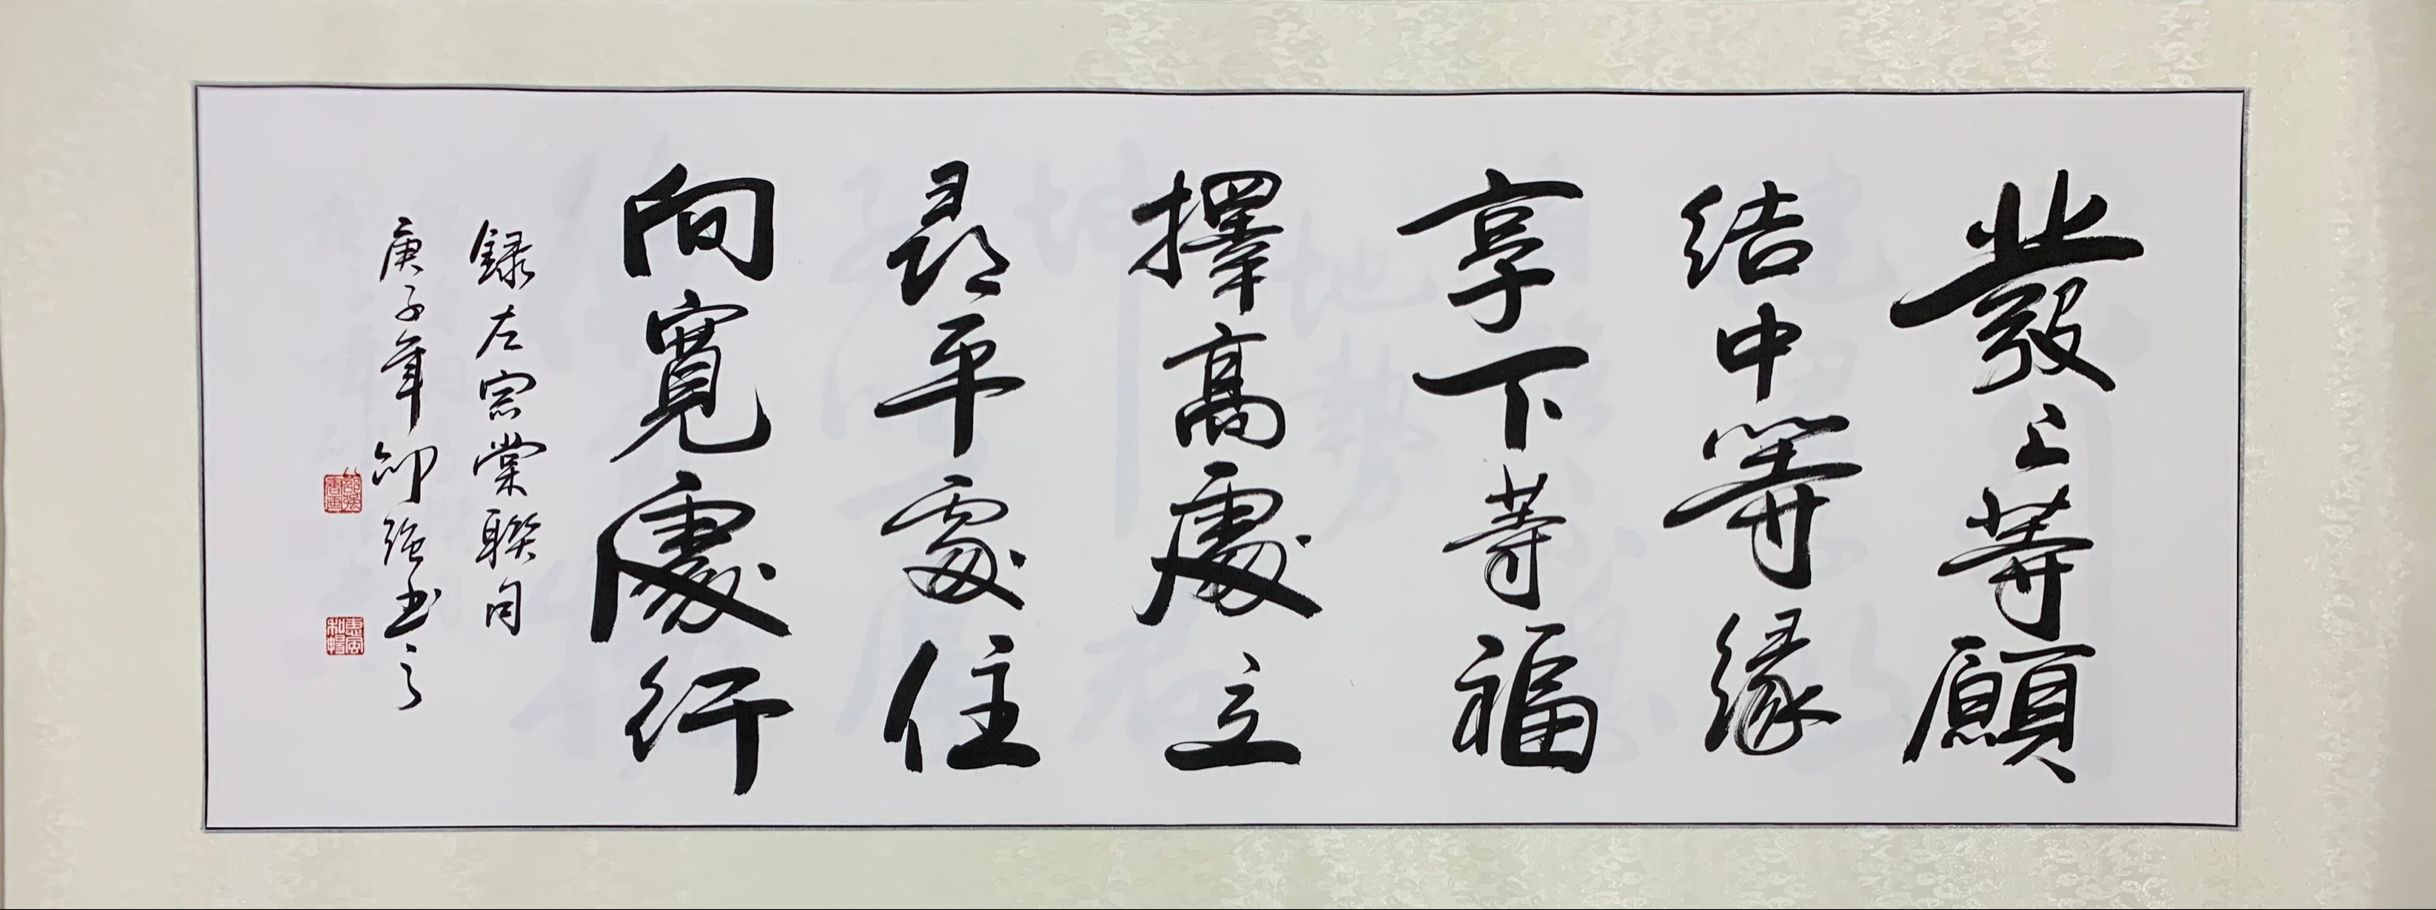 發上等願
結中等緣
享下等福
擇高處立
尋平處住
向寬處行
錄左宗棠聯句
庚子年仰強書之
惠風和暢